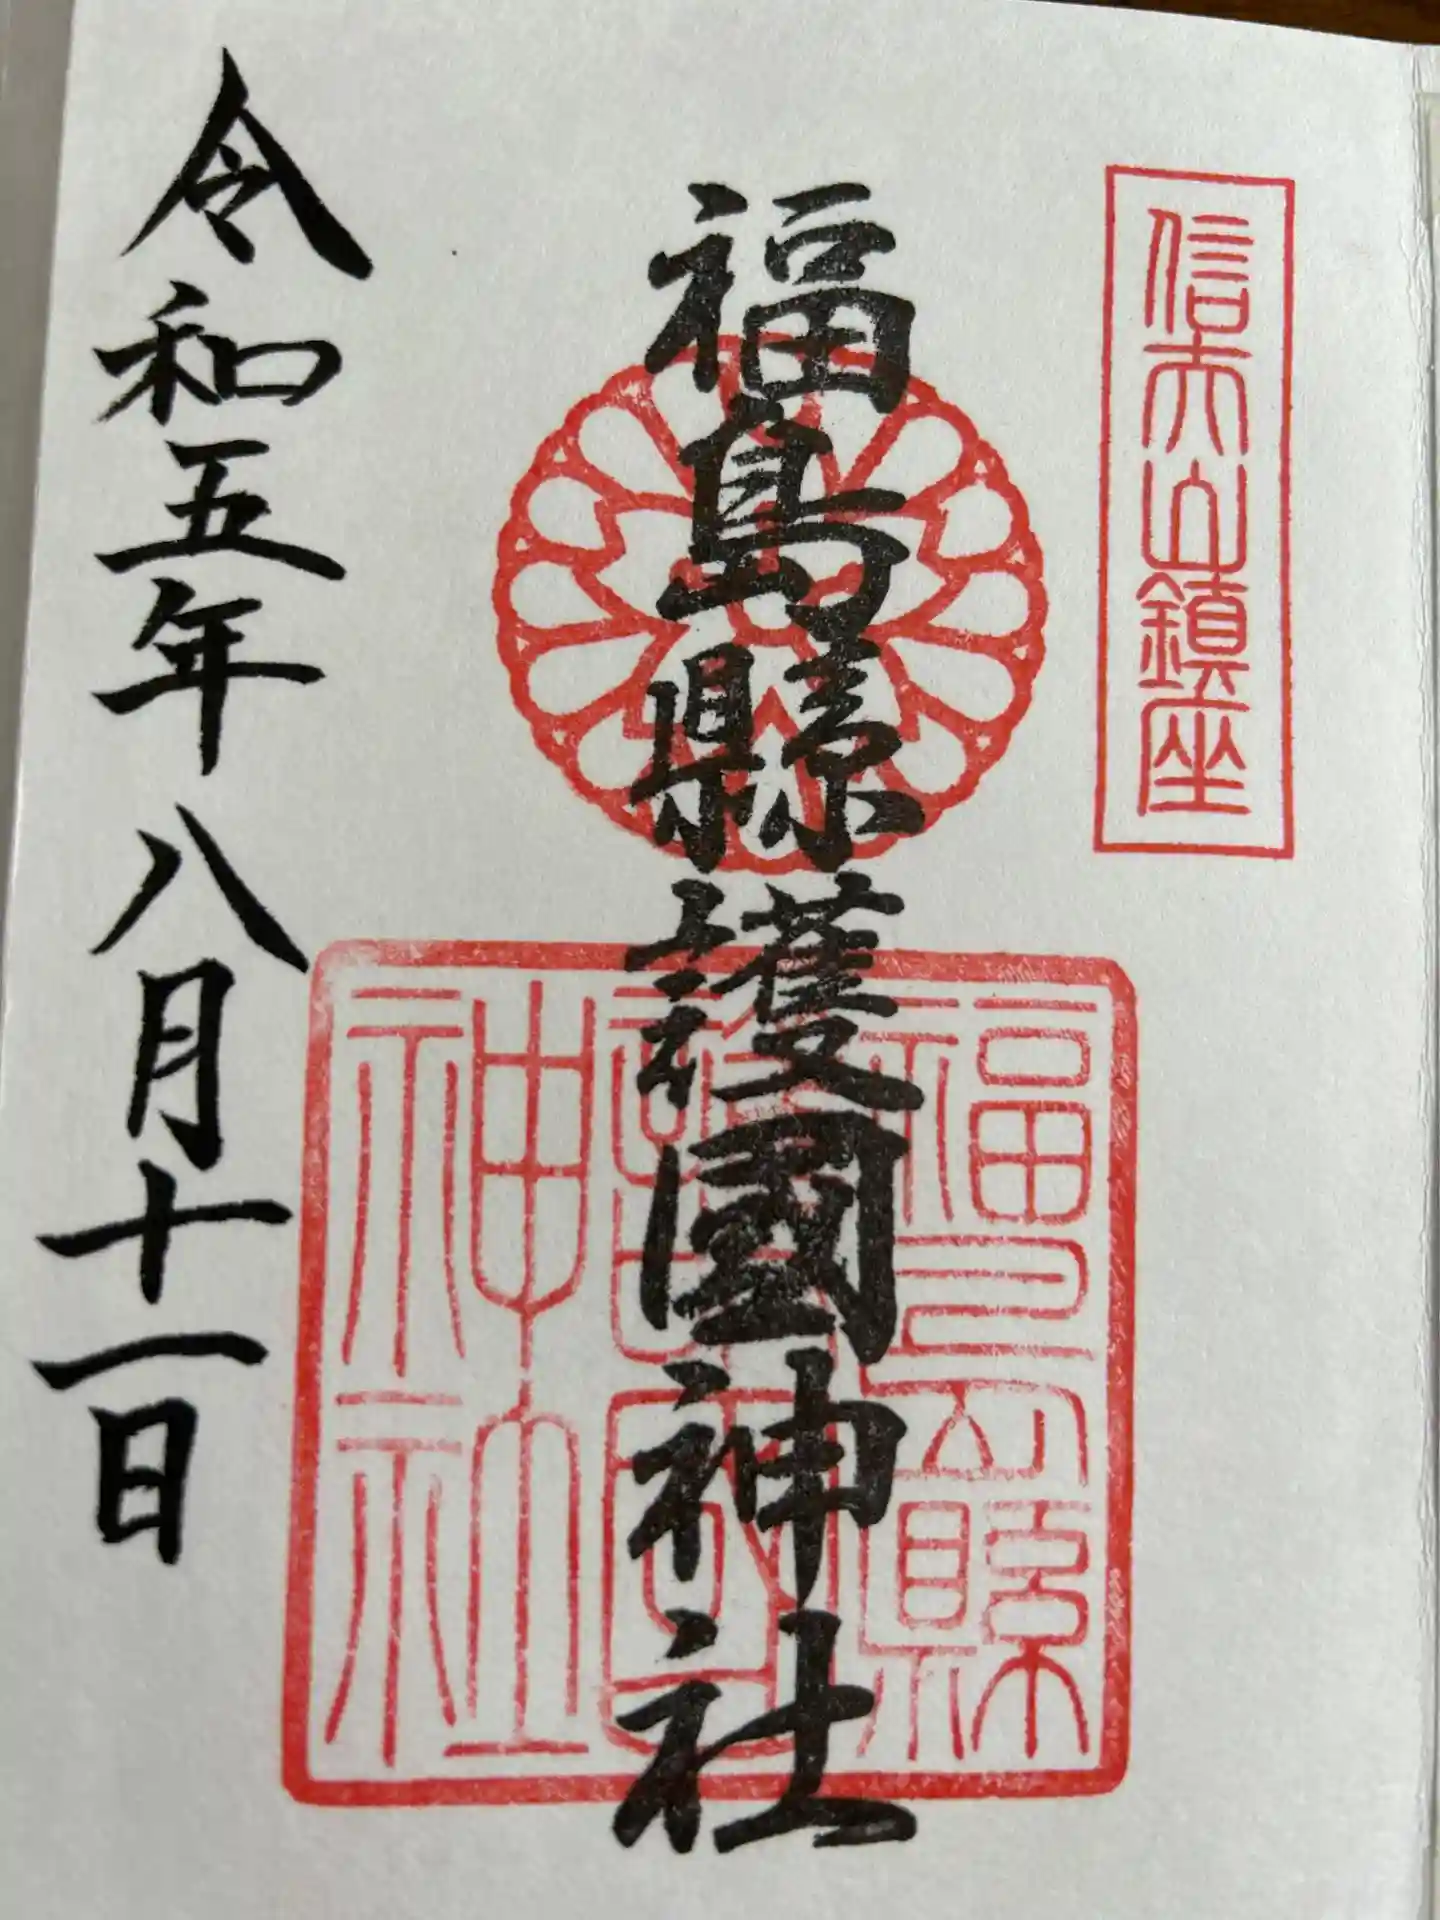 信夫山鎮座
福島縣護國神社
福島縣護國神社
令和五年八月十一日